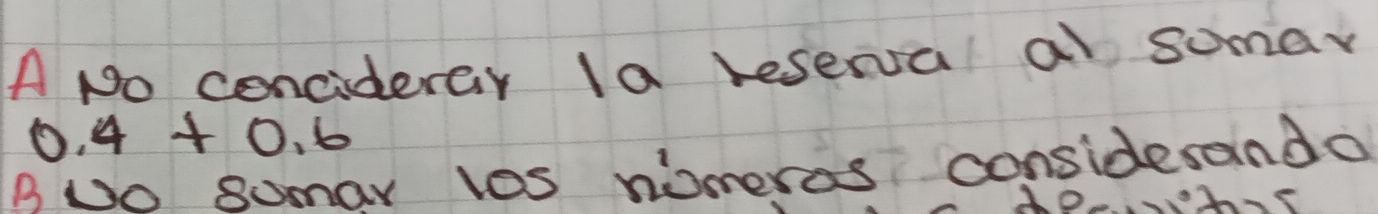 A No conciderar la reserva al somar
0.4 + 0.6
B No somar los números considerando